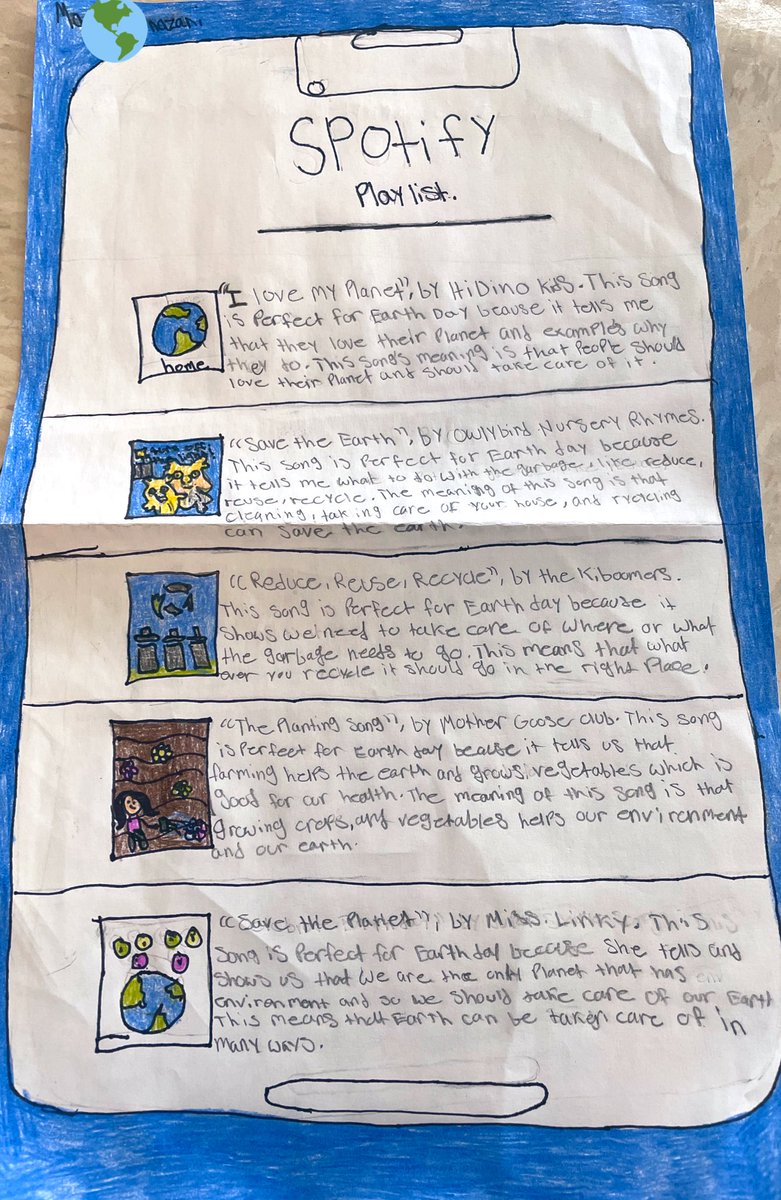 SPotify
Playlist.
"I love My Planet", by HiDino Kids. This song
is Perfect for Earth Day beause it tells me
that they love their Planet and examples why
they to. This song's meaning is that People should
love their Planet and should take care of it.
home
"Save the Earth", by Owlybird Nursery Rhymes.
This song is Perfect for Earth day because
it tells me what to do with the garbage, like reduce,
reuse, recycle. The meaning of this song is that
cleaning, taking care of your house, and rycicling
can save the earth.
"Reduce, Reuse, Recycle", by the Kiboomers.
This song is Perfect for Earth day because it
shows we need to take care of where or what
the garbage needs to go. This means that what
ever you recycle it should go in the right Place.
"The Planting Song", by Mother Goose Club. This song
is Perfect for Earth day beause it tells us that
farming helps the earth and grows vegetables which is
good for our health. The meaning of this song is that
growing crops, and vegetables helps our environment
and our earth.
"Save the Planet", by Miss Linky. This
song is Perfect for Earth day because she tells and
shows us that we are the only Planet that has
environment and so we should take care of our Earth
This means that Earth can be taken care of in
many ways.